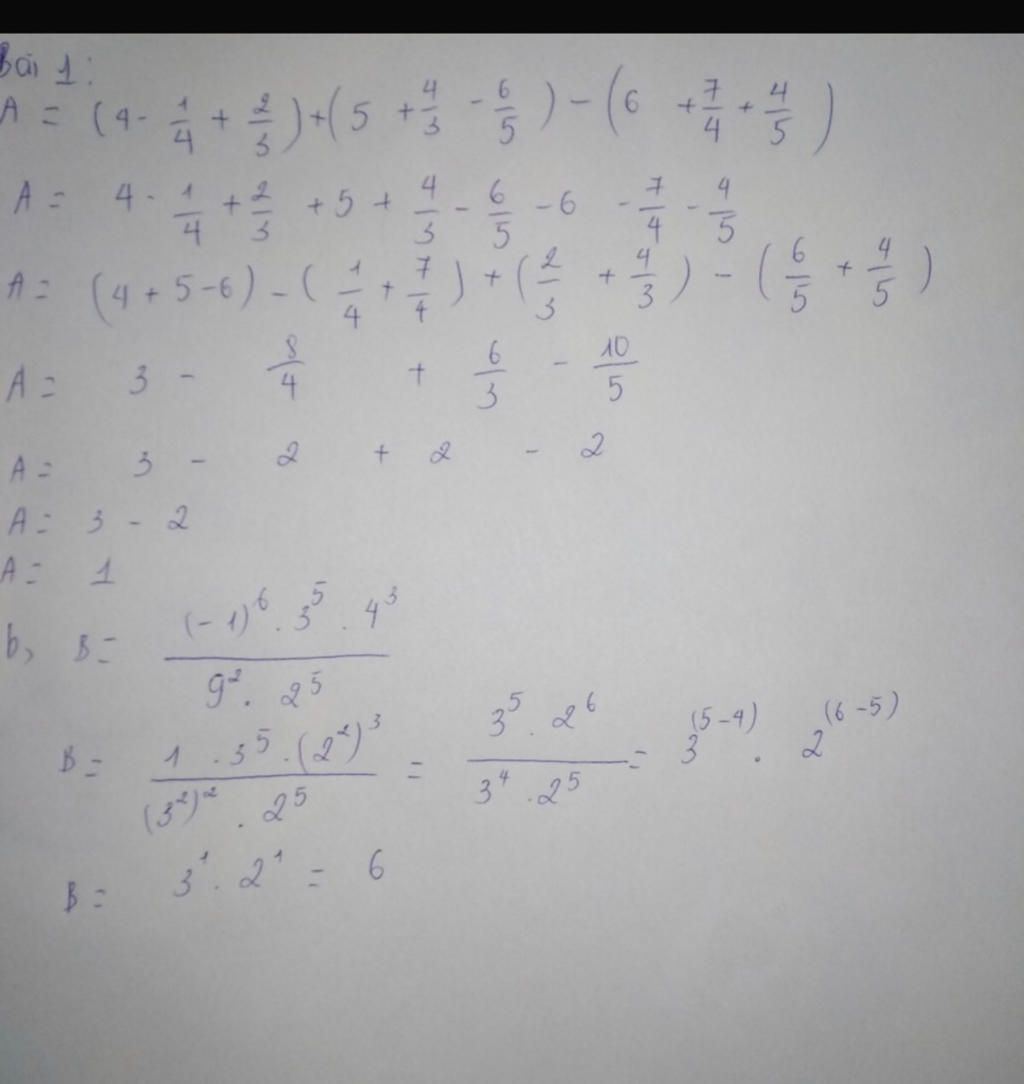 Bài 1:
A = (4 - 1/4 + 2/3) + (5 + 4/3 - 6/5) - (6 + 7/4 + 4/5)
A = 4 - 1/4 + 2/3 + 5 + 4/3 - 6/5 - 6 - 7/4 - 4/5
A = (4 + 5 - 6) - (1/4 + 7/4) + (2/3 + 4/3) - (6/5 + 4/5)
A = 3 - 8/4 + 6/3 - 10/5
A = 3 - 2 + 2 - 2
A = 3 - 2
A = 1
b, B = ((-1)^6 . 3^5 . 4^3) / (9^2 . 2^5)
B = (1 . 3^5 . (2^2)^3) / ((3^2)^2 . 2^5) = (3^5 . 2^6) / (3^4 . 2^5) = 3^(5-4) . 2^(6-5)
B = 3^1 . 2^1 = 6